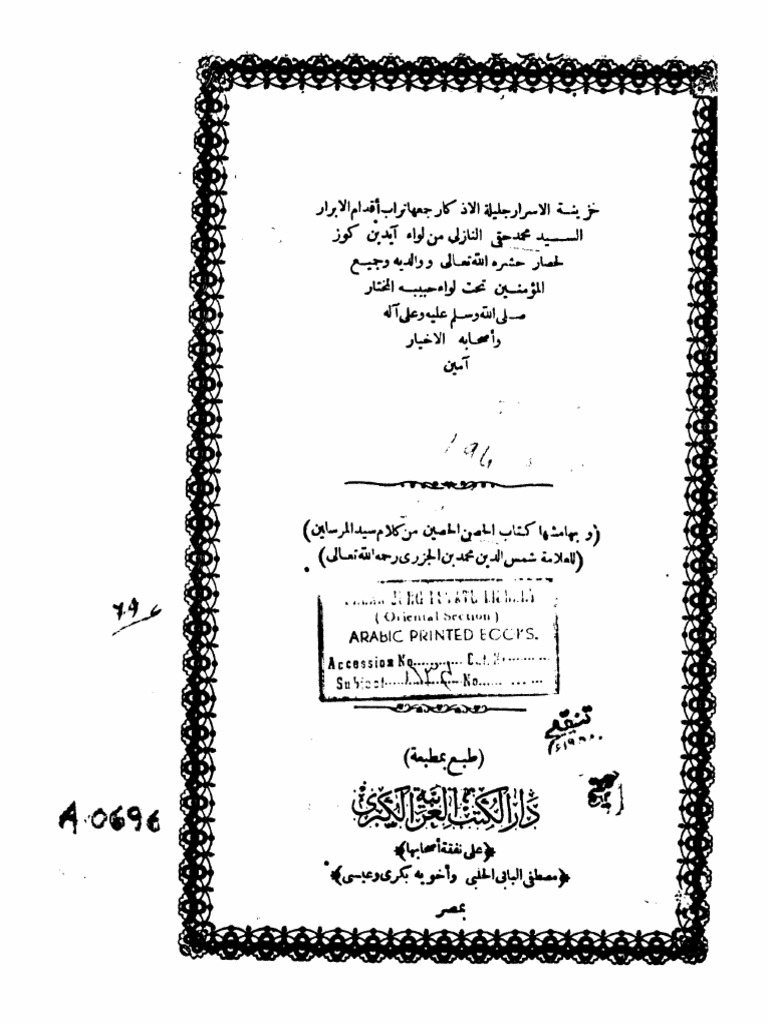 خزينة الاسرار جليلة الاذكار جمعها تراب أقدام الابرار
السيد محمد حقى النازلى من لواء آيدين كوز
لحصار حشره الله تعالى ووالديه وجميع
المؤمنين تحت لواء حبيبه المختار
صلى الله وسلم عليه وعلى آله
وأصحابه الاخيار
آمين
(وبهامشها كتاب الحصن الحصين من كلام سيد المرسلين)
(للعلامة شمس الدين محمد بن الجزرى رحمه الله تعالى)
(Oriental Section)
ARABIC PRINTED BOOKS.
Accession No.......... Cat. No..........
Subject.......... No..........
(طبع بمطبعة)
دار الكتب العربية الكبرى
﴿على نفقة أصحابها﴾
﴿مصطفى البابى الحلبى وأخويه بكرى وعيسى﴾
بمصر
A.0696